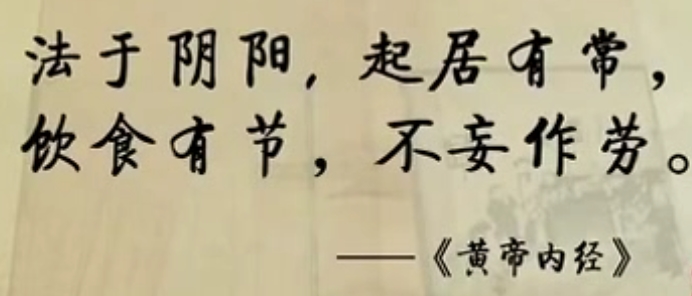 法于阴阳，起居有常，
饮食有节，不妄作劳。
——《黄帝内经》